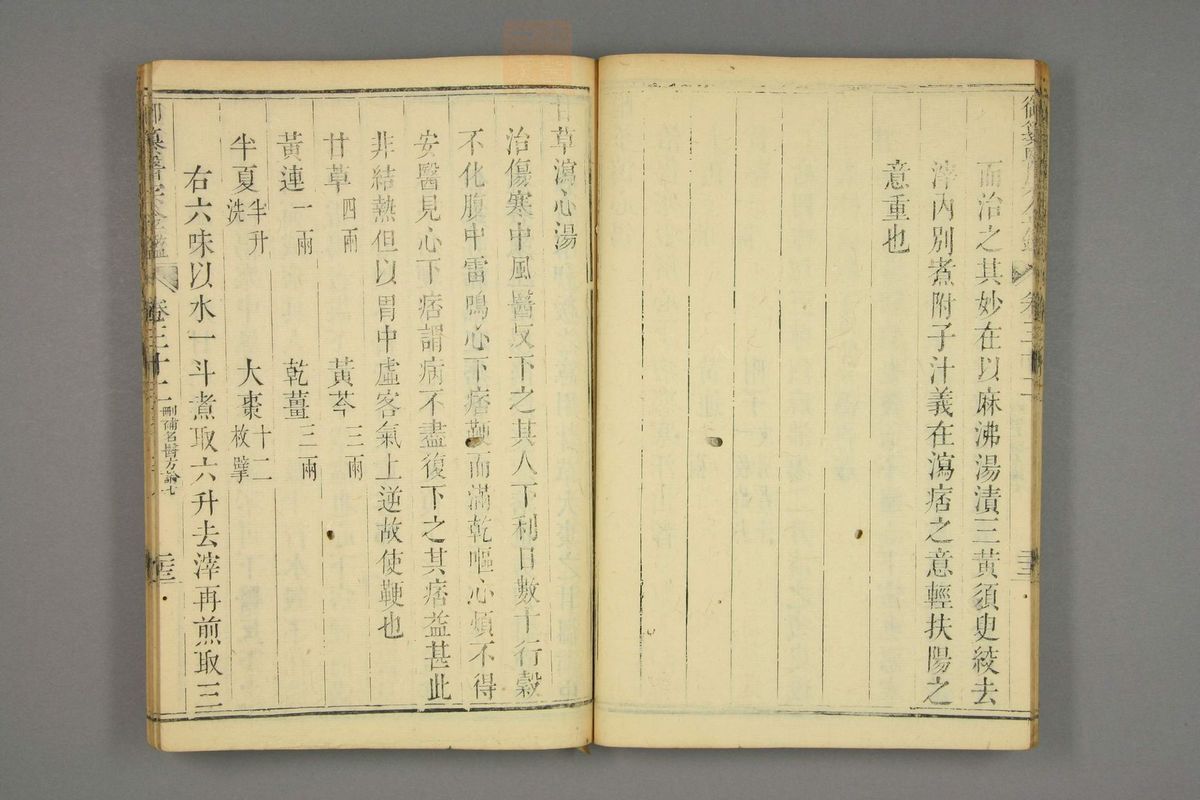 而治之其妙在以麻沸湯漬三黃須臾絞去
滓內別煮附子汁義在瀉痞之意輕扶陽之
意重也
甘草瀉心湯
治傷寒中風醫反下之其人下利日數十行穀
不化腹中雷鳴心下痞鞕而滿乾嘔心煩不得
安醫見心下痞謂病不盡復下之其痞益甚此
非結熱但以胃中虛客氣上逆故使鞕也
甘草四兩 黃芩三兩
黃連一兩 乾薑三兩
半夏半升洗 大棗十二枚擘
右六味以水一斗煮取六升去滓再煎取三
御纂醫宗金鑑 卷三十二 刪補名醫方論七